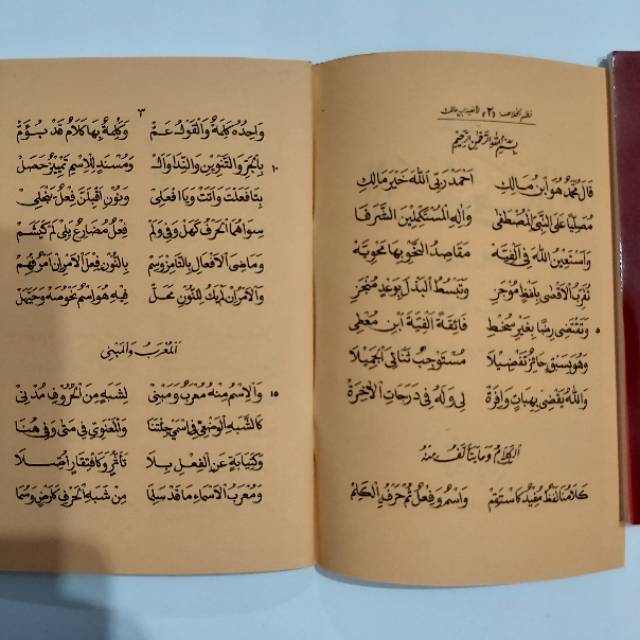 نظم الخلاصة «٢» لألفية ابن مالك
بِسْمِ اللهِ الرَّحْمٰنِ الرَّحِيْمِ
قَالَ مُحَمَّدٌ هُوَ ابْنُ مَالِكِ اَحْمَدُ رَبِّى اللهَ خَيْرَ مَالِكِ
مُصَلِّيًا عَلَى النَّبِىِّ الْمُصْطَفَى وَاٰلِهِ الْمُسْتَكْمِلِيْنَ الشَّرَفَا
وَاَسْتَعِيْنُ اللهَ فِى اَلْفِيَّهْ مَقَاصِدُ النَّحْوِ بِهَا مَحْوِيَّهْ
تُقَرِّبُ الْاَقْصَى بِلَفْظٍ مُوْجَزِ وَتَبْسُطُ الْبَذْلَ بِوَعْدٍ مُنْجَزِ
وَتَقْتَضِى رِضًا بِغَيْرِ سُخْطِ فَائِقَةً اَلْفِيَّةَ ابْنِ مُعْطِى ٥
وَهُوَ بِسَبْقٍ حَائِزٌ تَفْضِيْلَا مُسْتَوْجِبٌ ثَنَائِىَ الْجَمِيْلَا
وَاللهُ يَقْضِى بِهِبَاتٍ وَافِرَهْ لِى وَلَهُ فِى دَرَجَاتِ الْاٰخِرَهْ
اَلْكَلَامُ وَمَا يَتَأَلَّفُ مِنْهُ
كَلَامُنَا لَفْظٌ مُفِيْدٌ كَاسْتَقِمْ وَاسْمٌ وَفِعْلٌ ثُمَّ حَرْفٌ الْكَلِمْ
٣
وَاحِدُهُ كَلِمَةٌ وَالْقَوْلُ عَمْ وَكِلْمَةٌ بِهَا كَلَامٌ قَدْ يُؤَمْ
بِالْجَرِّ وَالتَّنْوِيْنِ وَالنِّدَا وَاَلْ وَمُسْنَدٍ لِلْاِسْمِ تَمْيِيْزٌ حَصَلْ ١٠
بِتَا فَعَلْتَ وَاَتَتْ وَيَا افْعَلِى وَنُوْنِ اَقْبِلَنَّ فِعْلٌ يَنْجَلِى
سِوَاهُمَا الْحَرْفُ كَهَلْ وَفِى وَلَمْ فِعْلٌ مُضَارِعٌ يَلِى لَمْ كَيَشَمْ
وَمَاضِىَ الْاَفْعَالِ بِالتَّا مِزْ وَسِمْ بِالنُّوْنِ فِعْلَ الْاَمْرِ اِنْ اَمْرٌ فُهِمْ
وَالْاَمْرُ اِنْ لَمْ يَكُ لِلنُّوْنِ مَحَلْ فِيْهِ هُوَ اسْمٌ نَحْوُ صَهْ وَحَيَّهَلْ
اَلْمُعْرَبُ وَالْمَبْنِى
وَالْاِسْمُ مِنْهُ مُعْرَبٌ وَمَبْنِى لِشَبَهٍ مِنَ الْحُرُوْفِ مُدْنِى ١٥
كَالشَّبَهِ الْوَضْعِىِّ فِى اسْمَىْ جِئْتَنَا وَالْمَعْنَوِىِّ فِى مَتَى وَفِى هُنَا
وَكَنِيَابَةٍ عَنِ الْفِعْلِ بِلَا تَأَثُّرٍ وَكَافْتِقَارٍ اُصِّلَا
وَمُعْرَبُ الْاَسْمَاءِ مَا قَدْ سَلِمَا مِنْ شَبَهِ الْحَرْفِ كَاَرْضٍ وَسُمَا